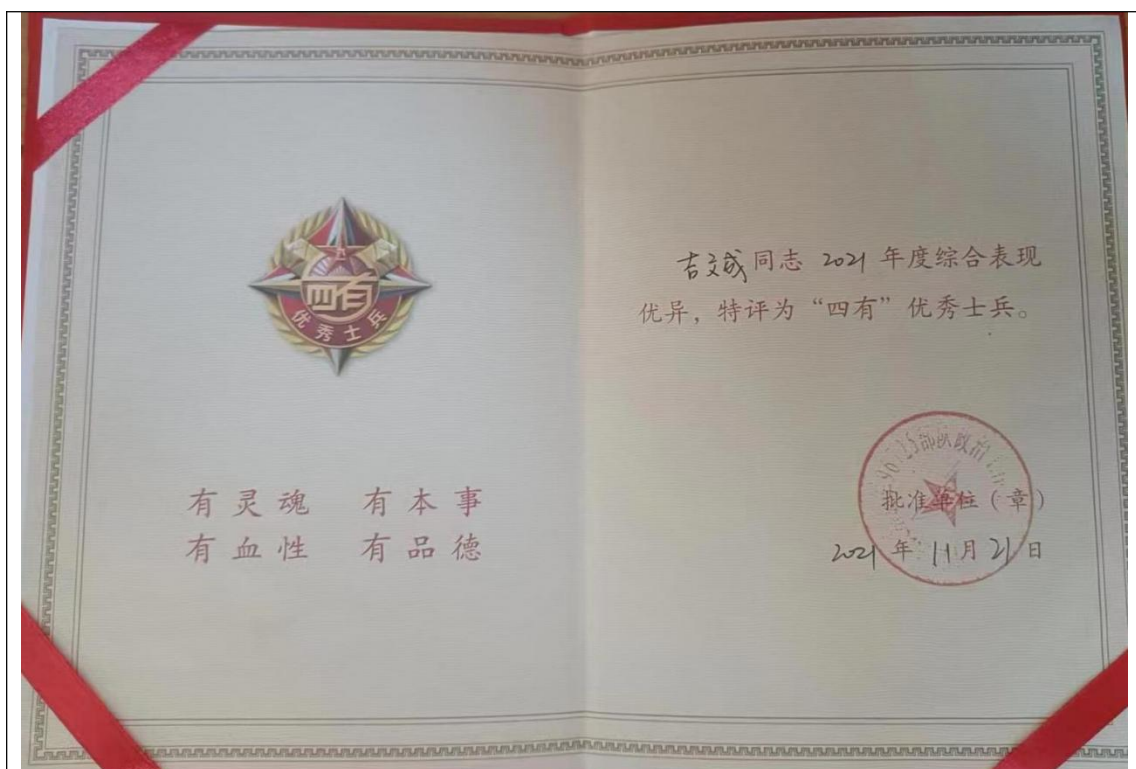 四有
优秀士兵
有灵魂 有本事
有血性 有品德
吉文成同志 2021 年度综合表现
优异，特评为“四有”优秀士兵。
部队政治
批准单位（章）
2021 年 11 月 21 日